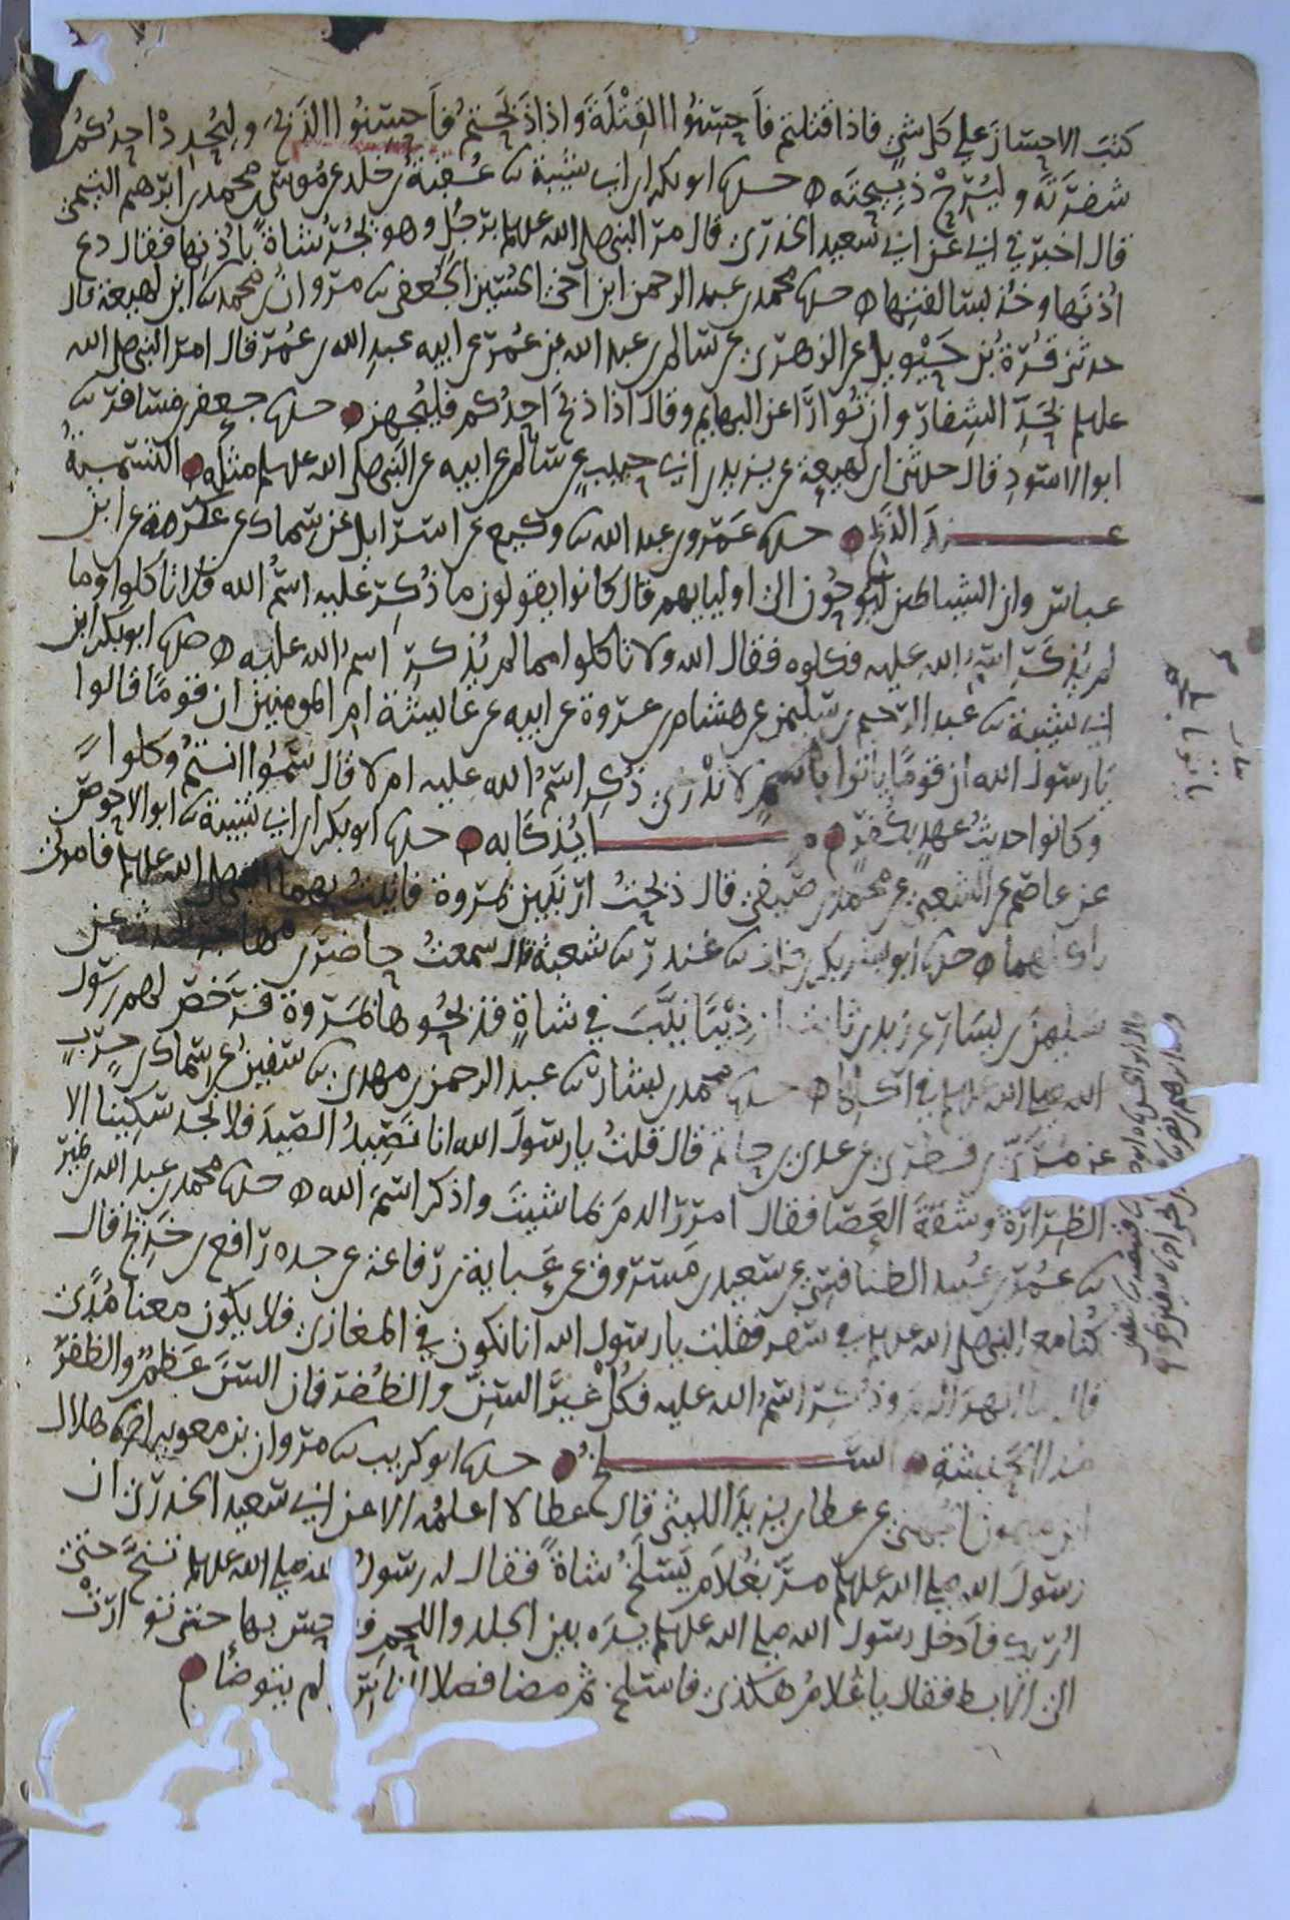 كتبَ الاحسانَ علي كل شيٍ فاذا قتلتم فاَحسِنُوا القِتْلَةَ واذا ذَبَحتُم فاَحسِنُوا الذَبحَ وليُحِدْ اَحدُكُم
شفرَتَه وليُرِحْ ذبيحتَه ه حدثنا ابو بكر ابن ابي شيبة ثنا عُقبَةُ بن خلد عن موسى بن محمد بن ابرهيم التيمي
قال اخبرني ابي عن ابي سعيد الخدري قال مر النبي صلى الله عليه وسلم برجُلٍ وهو يَجُرُّ شاةً باُذُنِها فقال دع
اُذنَها وخُذ بسالفتِها ه حدثنا محمد بن عبد الرحمن ابن اخي الحسين الجُعفي ثنا مروانُ بن محمد ثنا ابن لهيعة قال
حدثني قُرّةُ بن حَيْويل عن الزهري عن سالم بن عبد الله بن عُمَر عن ابيه عبدِ الله بن عُمَر قال امر النبي صلى الله
عليه وسلم بحَدِّ الشِفارِ وان تُوارَا عن البهايم وقال اذا ذبحَ احدُكم فليُجهِز حدثنا جعفر بن مسافر ثنا
ابو الاسودِ قال حدثني ابن لهيعة عن يزيد بن ابي حبيب عن سالم عن ابيه عن النبي صلى الله عليه وسلم مثله التسميةُ
عندَ الذبح حدثنا عَمرو بن عبد الله ثنا وكيع عن اسرايل عن سماك عن عكرمة عن ابن
عباس وان الشياطين ليُوحُون الى اوليايهم قال كانوا يقولون ما ذُكِرَ عليه اسمُ الله فلا تاكلوا وما
لم يُذكَرِ اسمُ الله عليه فكلوه فقال الله ولا تاكلوا مما لم يُذكرِ اسمُ الله عليه ه حدثنا ابو بكر ابن
ابي شيبة ثنا عبد الرحيم بن سليمن عن هشام بن عروة عن ابيه عن عايشة ام المومنين ان قومًا قالوا
يا رسول الله ان قومًا ياتوا بلحمٍ لا ندْري ذُكِر اسمُ الله عليه ام لا قال سَمُّوا انتُم وكلوا
وكانوا حديثُ عهدٍ بكُفرٍ ه ما يُذكَّا به حدثنا ابو بكر ابن ابي شيبة ثنا ابو الاحوص
عن عاصم عن الشعبي عن محمد بن صَيفي قال ذبحتُ ارنبَين بمَروة فاتيتُ بهما النبي صلى الله عليه وسلم فامرني
باكلهما ه حدثنا ابو بشر بكر بن خلف ثنا غندر ثنا شعبة قال سمعتُ حاضِرَ بن مهاجر يحدث عن
سليمن بن يسار عن زيد بن ثابت ان ذِيْبًا نَيَّبَ في شاةٍ فذبحُوها بمَروة فرَخّصَ لهم رسول
الله صلى الله عليه وسلم في اكلها ه حدثنا محمد بن بشار ثنا عبد الرحمن بن مهدي ثنا سفين عن سماك بن حرْبٍ
عن مُرَيّ بن قطَري عن عدي بن حاتم قال قلتُ يا رسولَ الله انا نَصِيدُ الصَيدَ فلا نجد سكينا الا
الظِرارَةَ وشقةَ العَصَا فقال امررِ الدمَ بما شيتَ واذكر اسمَ الله ه حدثنا محمد بن عبد الله بن نمير
ثنا عُمَر بن عُبيد الطنافسي عن سعيد بن مَسروق عن عَباية بن رفاعة عن جده رافع بن خَدِيج قال
كُنا مع النبي صلى الله عليه وسلم في سفر فقلت يا رسول الله انا نكون في المغازي فلا يكون معنا مُدًى
قال ما انهرَ الدمَ وذُكِرَ اسمُ الله عليه فكُلْ غيرَ السِنِّ والظُفرِ فان السنَ عَظمٌ والظفرُ
مُدا الحَبشة السلخُ حدثنا ابو كريب ثنا مروان بن معويه اخبرنا هلال
ابن ميمون الجُهني عن عطا بن يزيدَ الليثي قال عطا لا اعلمُه الا عن ابي سعيد الخدري ان
رسولَ الله صلى الله عليه وسلم مرَّ بغُلامٍ يَسلَخُ شاةً فقال له رسولُ الله صلى الله عليه وسلم تنحَّ حتى
اُريك فاَدخل رسول الله صلى الله عليه وسلم يدَه بين الجلد واللحم فدحس بها حتى توارَتْ
الى الابط فقال يا غُلامُ هكذى فاسلخ ثم مضا فصلا للناس ولم يتوضأ ه